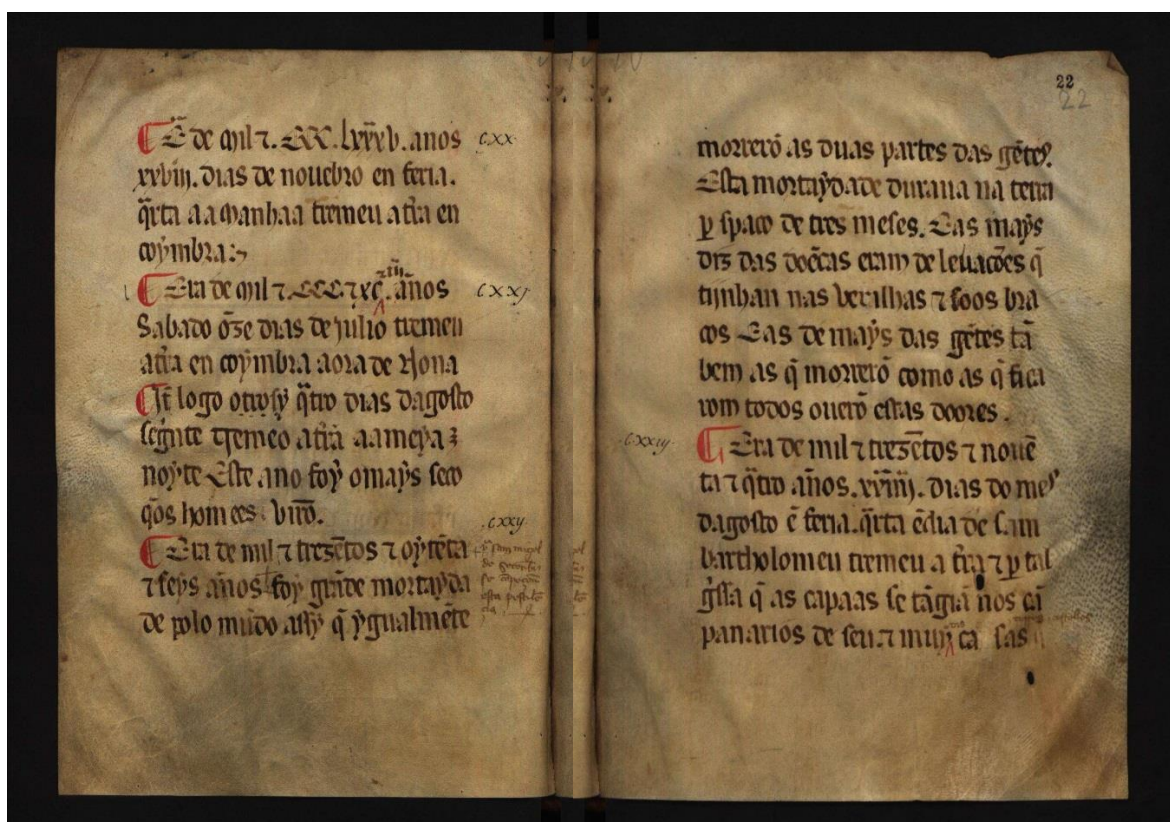 ¶ E᷈ de mil ⁊ CCC. lxxxv. anos
cxx.
xxviii. dias de nouebro en feria.
q̃rta aa manhaa tremeu a tr̃a en
coỹmbra:
¶ Era de mil ⁊ CCC. ⁊ xc. años
cxxj
Sabado oz̃e dias de julio tremeu
a tr̃a en coỹmbra a ora de Nona
¶ It̃ logo otrosy q̃tro dias dagosto
seg̃nte tremeo a tr̃a aa meya
noyte Este ano foy o mays seco
q̃ os homees virõ.
cxxij
¶ Era de mil ⁊ trezẽtos ⁊ oytẽta
⁊ seys años foy grãde mortayda
de polo mũdo assy q̃ ygualmẽte
22
22
morrerõ as duas partes das gẽtes.
Esta mortaydade duraua na terra
ꝑ spaço de tres meses. E as mays
das doẽças eram de leuações q̃
tijnhan nas verilhas ⁊ soos bra
ços E as de mays das gẽtes tã
bem as q̃ morrerõ como as q̃ fica
rom todos ouerõ estas doores.
cxxiij
¶ Era de mil ⁊ trezẽtos ⁊ nouẽ
ta ⁊ q̃tro años. xxiiij. dias do mes
dagosto ẽ feria. q̃rta ẽ dia de sam
bartholomeu tremeu a tr̃a ⁊ ꝑ tal
g̃sa q̃ as cãpaas se tãgiã nos cã
panarios de seu. ⁊ muytas ca sas